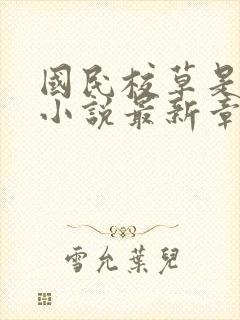 國民校草是
小說最新章
雪允葉兒